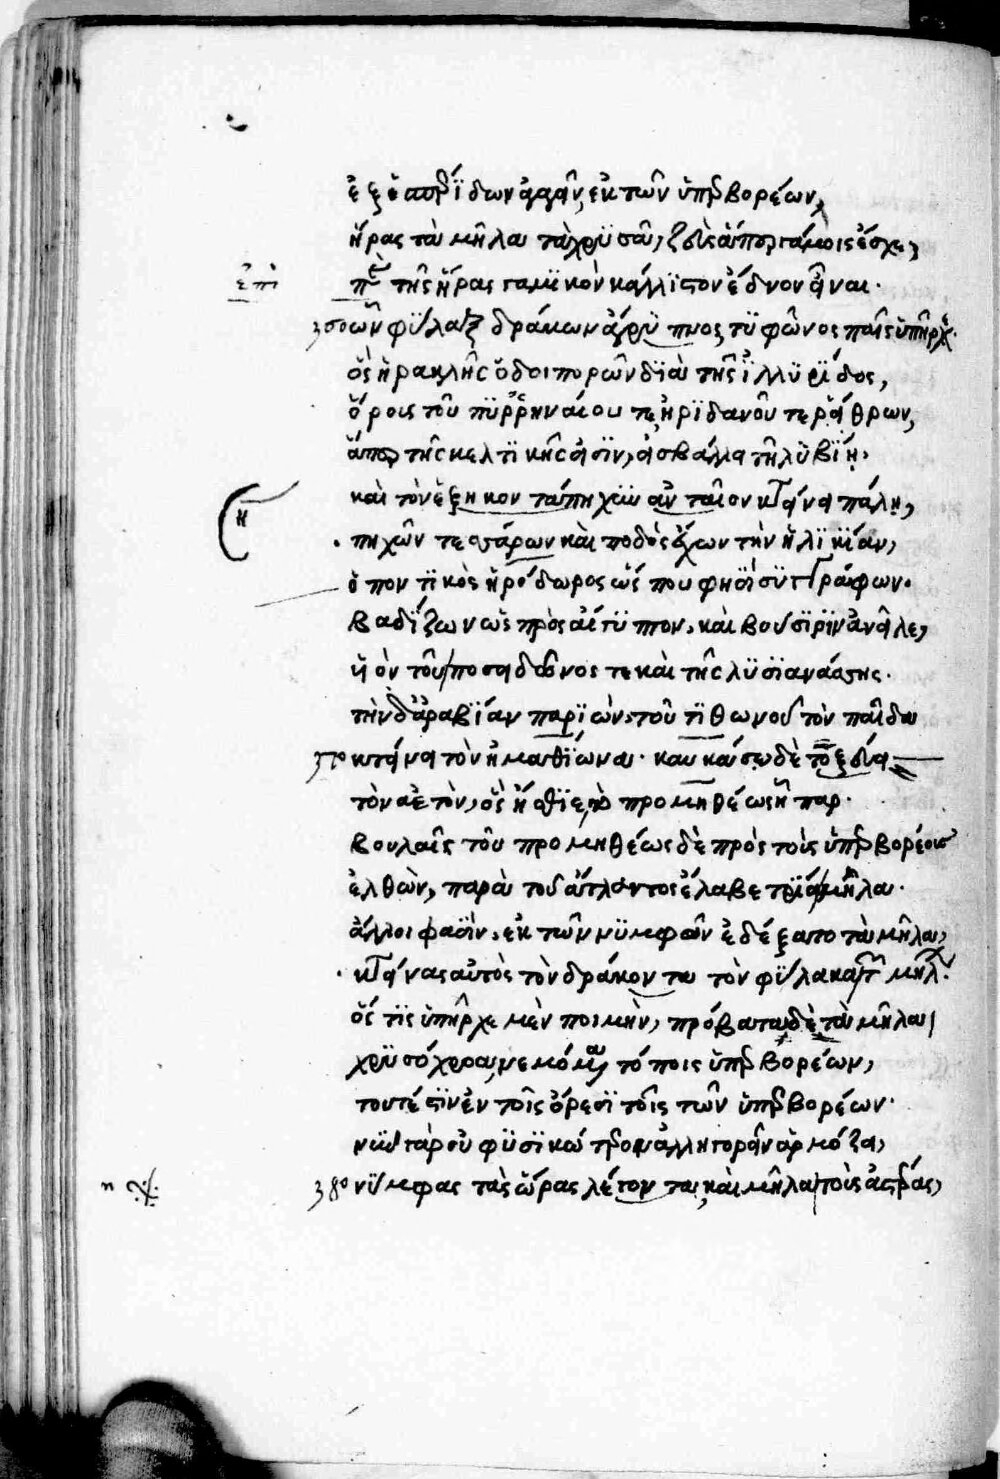 ἐξ ἑσπερίδων ἀγαγεῖν, ἐκ τῶν ὑπερβορέων,
ἥρας τὰ μῆλα τὰ χρυσᾶ,
ἐπὶ τῆς ἥρας γαμικὸν κάλλιστον ἕδνον εἶναι.
360 ὧν φύλαξ δράκων ἄγρυπνος τυφῶνος παῖς ὑπῆρχεν.
ὃς ἡρακλῆς ὁδοιπορῶν διὰ τῆς ἰλλυρίδος,
ὄρους τοῦ πυρρηναίου τε ἠριδανοῦ τε ῥείθρων,
ἄπο τῆς κελτικῆς εἰσὶν, εἰσβάλλει τῇ λιβύῃ.
καὶ τὸν ἑξήκοντάπηχυν ἀνταῖον κτείνει πάλῃ,
πηχῶν τεσσάρων καὶ ποδὸς ἔχων τὴν ἡλικίαν,
ὁ ποντικὸς ἡρόδωρος ὥς που φησὶ συγγράφων.
βαδίζων ὡς πρὸς αἴγυπτον, καὶ βούσιριν ἀνεῖλε,
υἱὸν τοῦ ποσειδῶνος τε καὶ τῆς λυσιανάσσης.
τὴν δ' ἀραβίαν παριὼν, τοῦ τιθωνοῦ τὸν παῖδα
370 κτείνει τὸν ἠμαθίωνα. καυκάσῳ δὲ τοξεύει
τὸν αἐτὸν, ὃς ἤσθιε προμηθέως ἧπαρ.
βουλαῖς τοῦ προμηθέως δὲ πρὸς τοὺς ὑπερβορέους
ἐλθὼν, παρὰ τοῦ ἄτλαντος ἔλαβε τρία μῆλα.
ἄλλοι φασὶν, ἐκ τῶν νυμφῶν ἐδέξατο τὰ μῆλα,
κτείνας αὐτὸς τὸν δράκοντα τὸν φύλακα τῶν μήλων.
ὅς τις ὑπῆρχε μὲν ποιμὴν, πρόβατα δὲ τὰ μῆλα
χρυσόχροα, νεμόμενα τόποις ὑπερβορέων,
τουτέστιν ἐν τοῖς ὄρεσι τοῖς τῶν ὑπερβορέων.
νῦν γὰρ οὐ φυσικῷ τρόπῳ ἀλληγορεῖν ἁρμόζει,
380 νύμφας τὰς ὥρας λέγοντα, καὶ μῆλα τοὺς ἀστέρας,